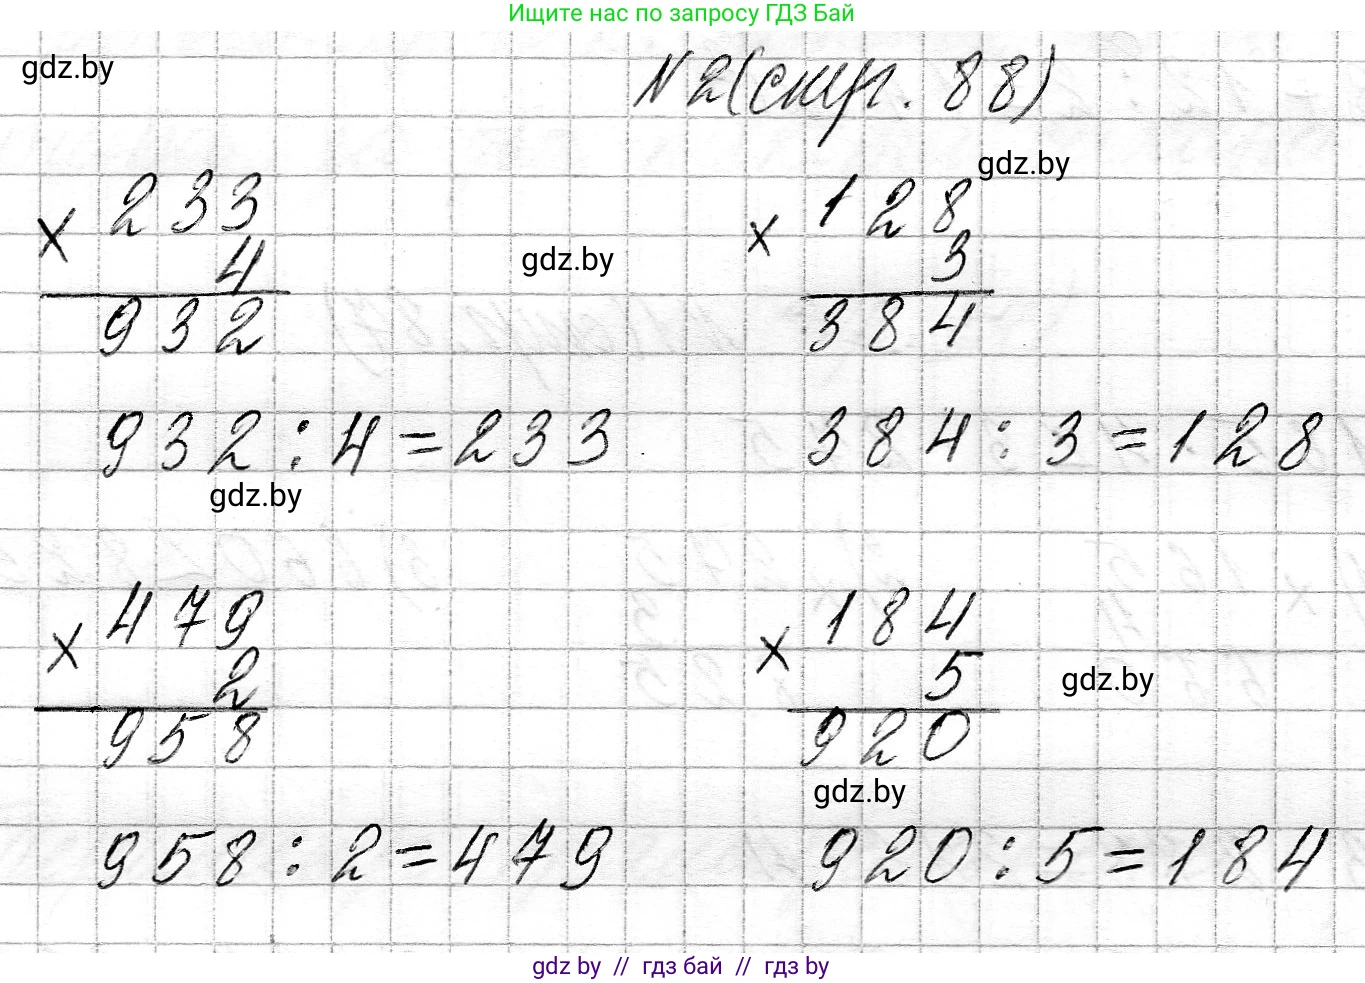 Ищите нас по запросу ГДЗ Бай
gdz.by
N2(стр. 88)
gdz.by
× 233
4
932
gdz.by
× 128
3
384
932 : 4 = 233
384 : 3 = 128
gdz.by
× 479
2
958
× 184
5
920
gdz.by
gdz.by
958 : 2 = 479
920 : 5 = 184
gdz.by // гдз бай // гдз by